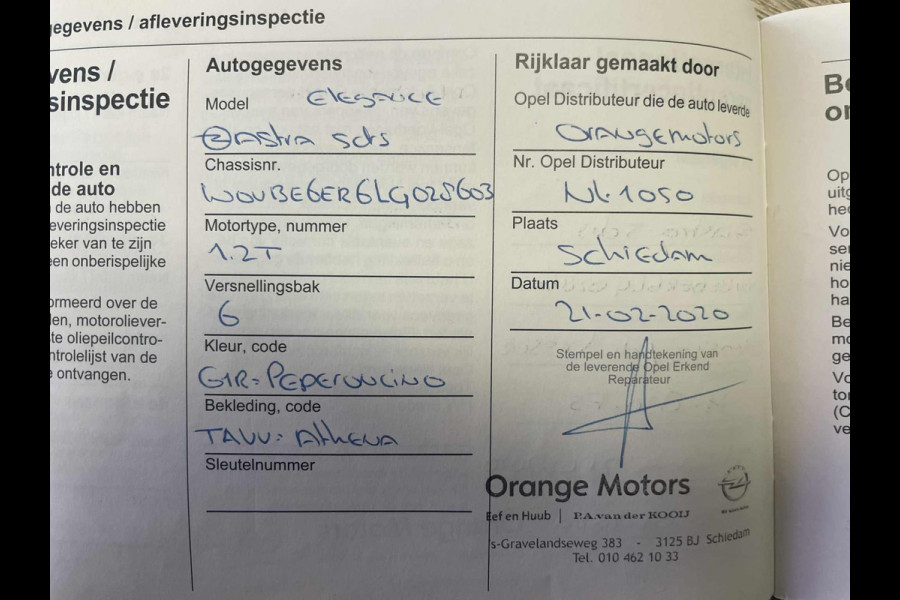 gegevens / afleveringsinspectie
vens /
sinspectie
ntrole en
de auto
de auto hebben
everingsinspectie
eker van te zijn
een onberispelijke
ormeerd over de
len, motoroliever-
te oliepeilcontro-
ntrolelijst van de
ontvangen.
Autogegevens
Model Elegance
Astra Sdrs
Chassisnr.
Motortype, nummer
1.2T
Versnellingsbak
6
Kleur, code
G1R=Peperoncino
Bekleding, code
TAVV: Athena
Sleutelnummer
Rijklaar gemaakt door
Opel Distributeur die de auto leverde
Orangemotors
Nr. Opel Distributeur
NL.1050
Plaats
Schiedam
Datum
21-02-2020
Stempel en handtekening van
de leverende Opel Erkend
Reparateur
Orange Motors
Eef en Huub | P.A. van der KOOIJ
's-Gravelandseweg 383 - 3125 BJ Schiedam
Tel. 010 462 10 33
Be
on
Op
uitg
hee
Vo
ser
nie
ho
ha
Be
mo
ge
Vo
tor
(C
ve